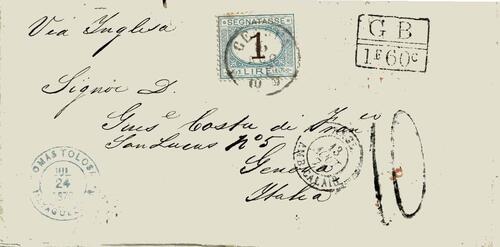 Via Inglesa
SEGNATASSE
1
LIRE
GE
G B
1F60c
Signor D.
Gius e Costa di Fran co
San Lucas nº 5
Genova
Italia
OMAS TOLOSA
24
AMB. CALAIS
13
10